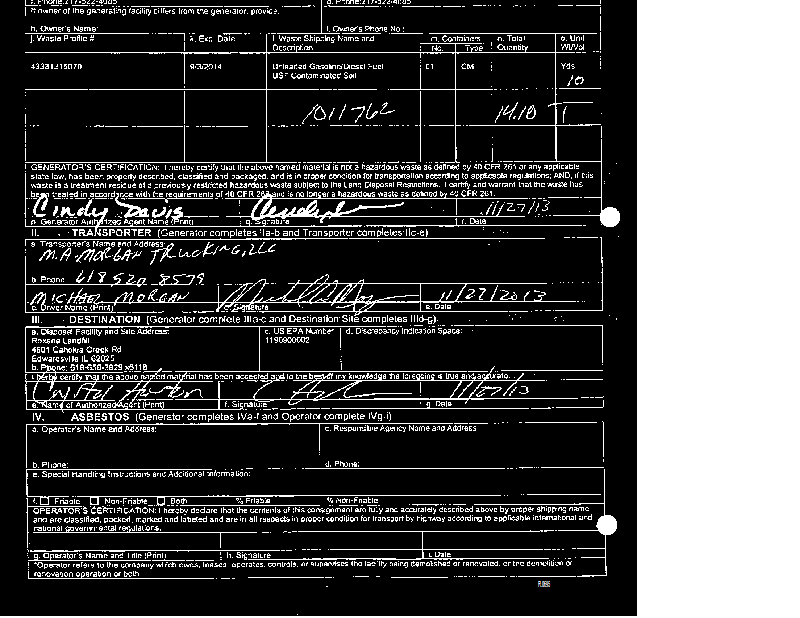 f. Phone:217-522-4085 g. Phone:217-522-4085
If owner of the generating facility differs from the generator, provide:
h. Owner's Name: i. Owner's Phone No.:
j. Waste Profile # k. Exp. Date l. Waste Shipping Name and Description m. Containers No. Type n. Total Quantity o. Unit Wt/Vol
9/3/2014 Unleaded Gasoline/Diesel Fuel 01 CM Yds
UST Contaminated Soil 10
1011762 14.10
GENERATOR'S CERTIFICATION: I hereby certify that the above named material is not a hazardous waste as defined by 40 CFR 261 or any applicable
state law, has been properly described, classified and packaged, and is in proper condition for transportation according to applicable regulations; AND, if this
waste is a treatment residue of a previously restricted hazardous waste subject to the Land Disposal Restrictions. I certify and warrant that the waste has
been treated in accordance with the requirements of 40 CFR 268 and is no longer a hazardous waste as defined by 40 CFR 261.
Cindy Davis 11/27/13
p. Generator Authorized Agent Name (Print) q. Signature r. Date
II. TRANSPORTER (Generator completes IIa-b and Transporter completes IIc-e)
a. Transporter's Name and Address:
M.A. MORGAN TRUCKING, LLC
b. Phone: 618 520 8579
MICHAEL MORGAN 11/27/2013
c. Driver Name (Print) d. Signature e. Date
III. DESTINATION (Generator complete IIIa-c and Destination Site completes IIId-g)
a. Disposal Facility and Site Address: c. US EPA Number d. Discrepancy Indication Space:
Roxana Landfill
4601 Cahokia Creek Rd
Edwardsville IL 62025
b. Phone:
I hereby certify that the above named material has been accepted and to the best of my knowledge the foregoing is true and accurate.
11/27/13
e. Name of Authorized Agent (Print) f. Signature g. Date
IV. ASBESTOS (Generator completes IVa-f and Operator complete IVg-i)
a. Operator's Name and Address: c. Responsible Agency Name and Address
b. Phone: d. Phone:
e. Special Handling Instructions and Additional Information:
f. Friable Non-Friable Both % Friable % Non-Friable
OPERATOR'S CERTIFICATION: I hereby declare that the contents of this consignment are fully and accurately described above by proper shipping name
and are classified, packed, marked and labeled and are in all respects in proper condition for transport by highway according to applicable international and
national governmental regulations.
g. Operator's Name and Title (Print) h. Signature i. Date
*Operator refers to the company which owns, leases, operates, controls, or supervises the facility being demolished or renovated, or the demolition or
renovation operation or both